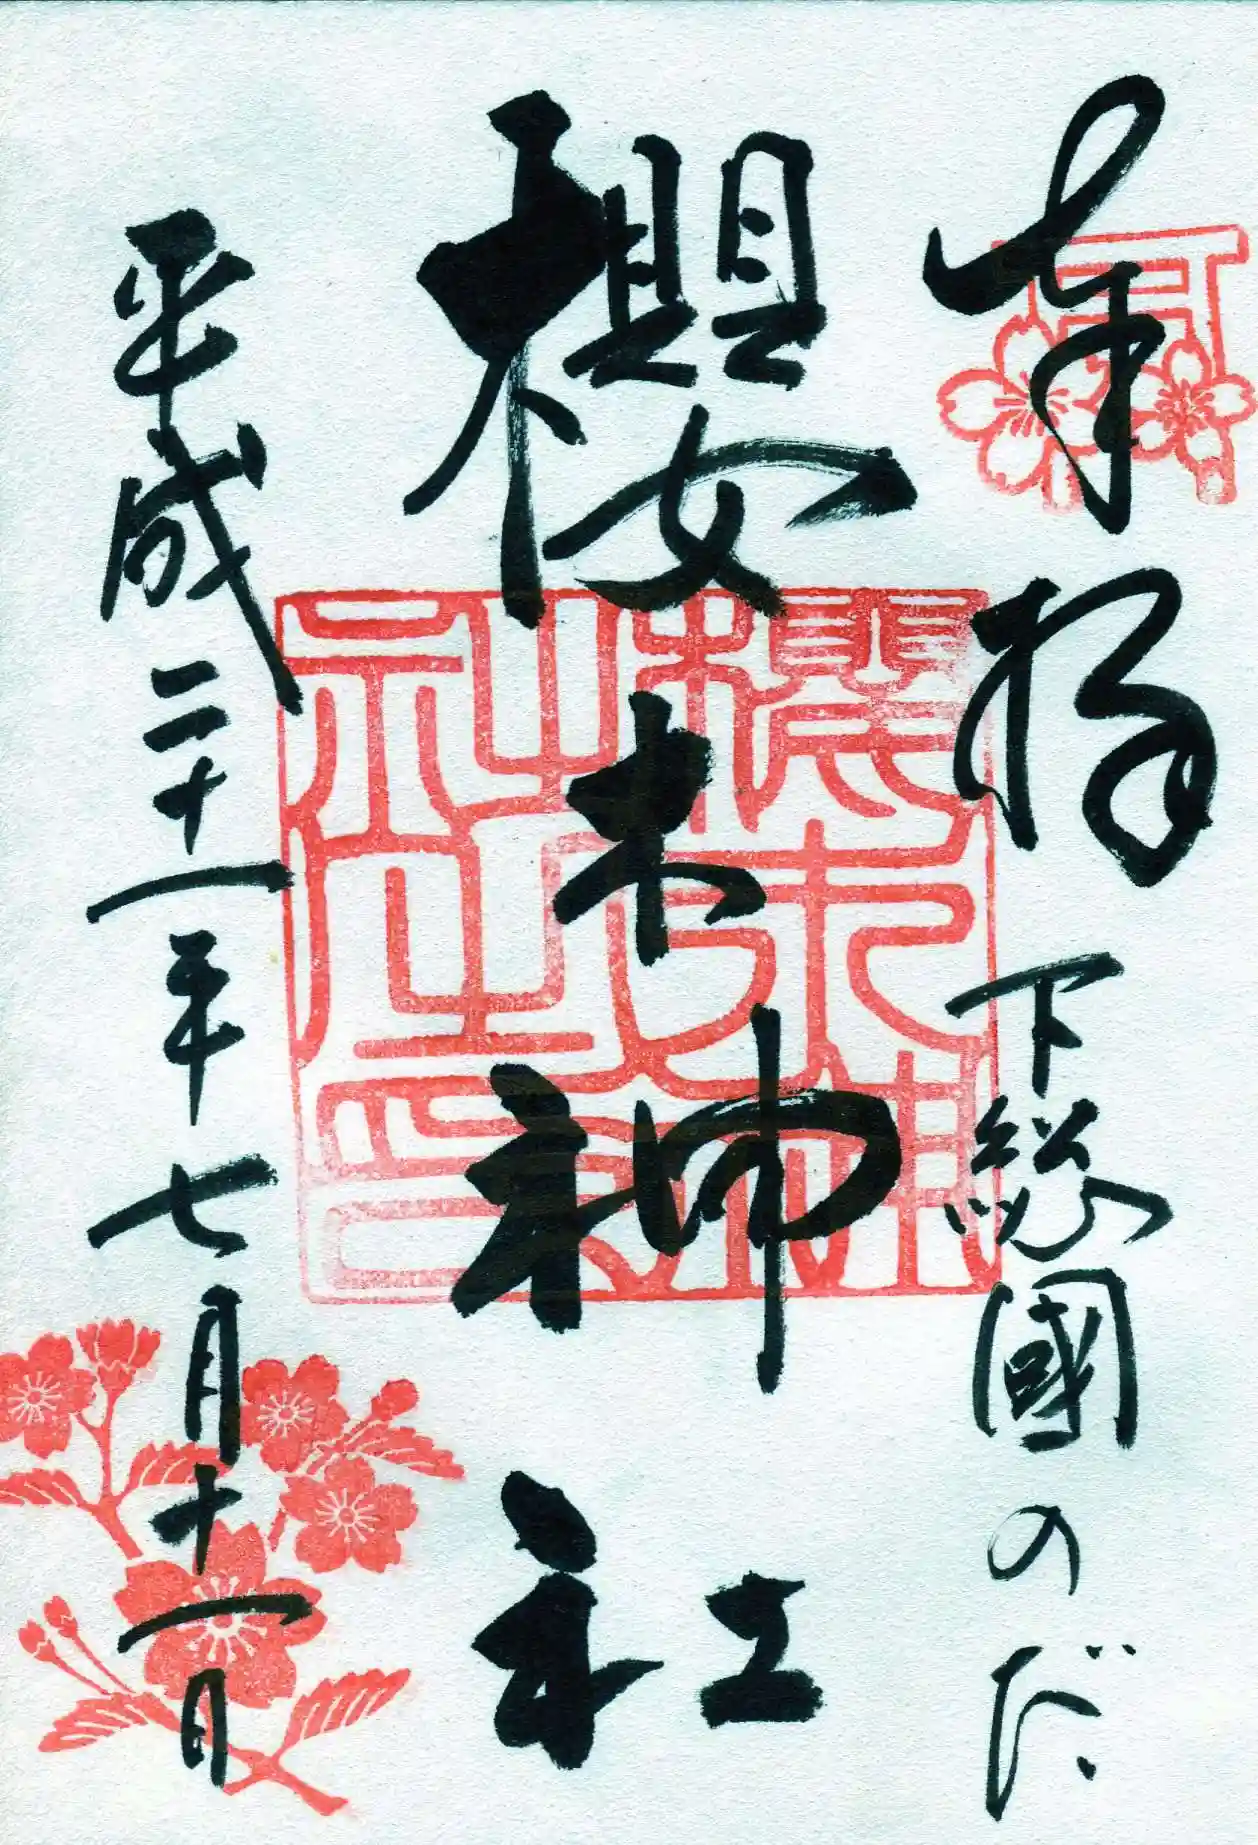 奉拝 下総國のだ
櫻木神社
平成二十一年七月十一日
櫻木神
社之印